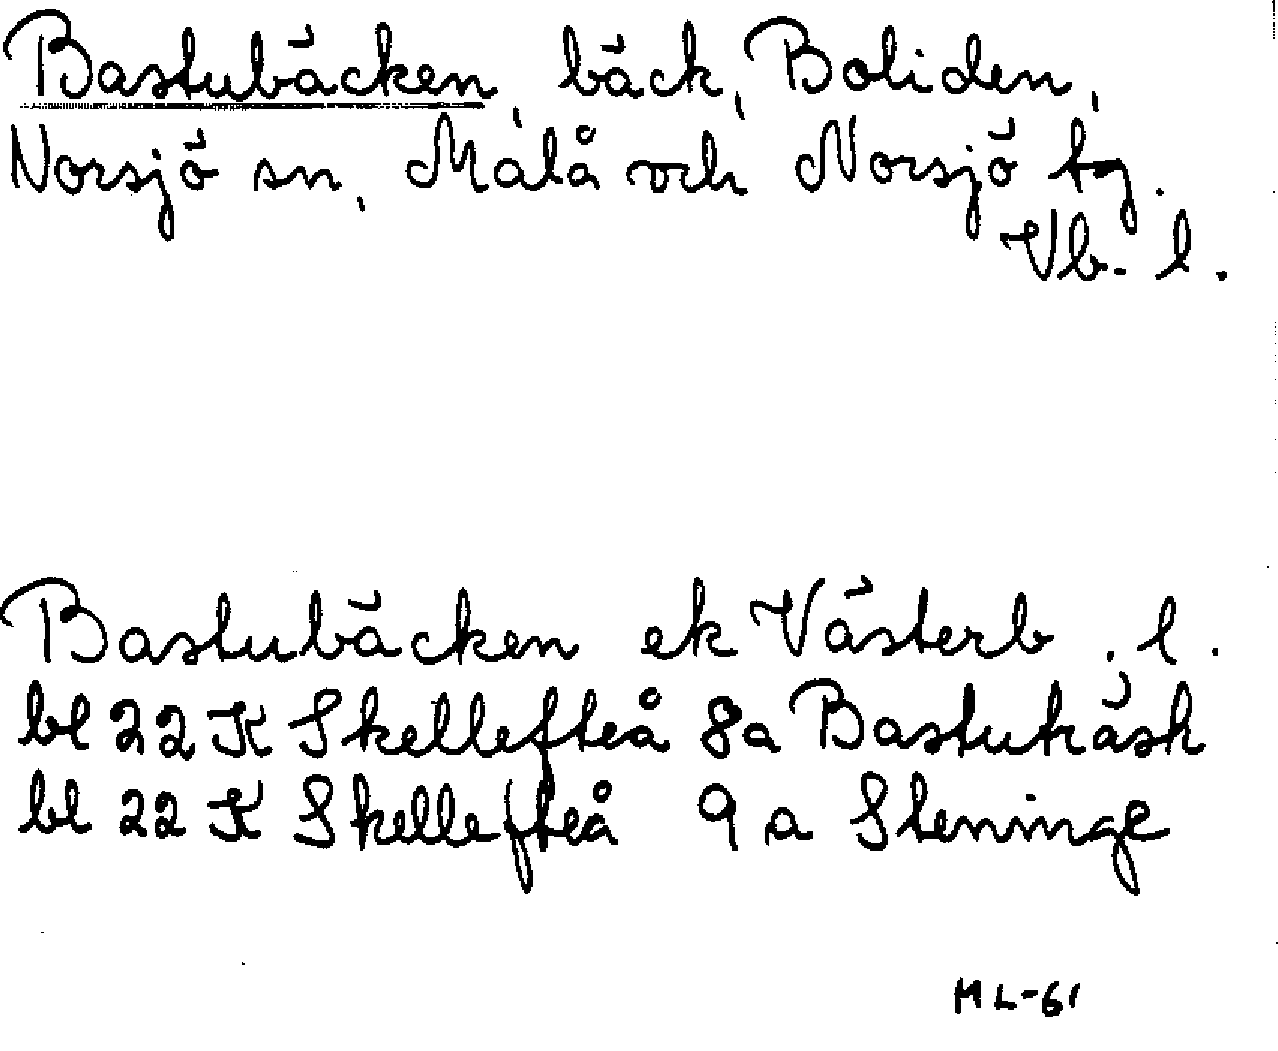 Bastubäcken, bäck, Boliden,
Norsjö sn, Malå och Norsjö tg.
Vb. l.
Bastubäcken ek Västerb. l.
bl 22 K Skellefteå 8a Bastuträsk
bl 22 K Skellefteå 9a Steninge
ML-61